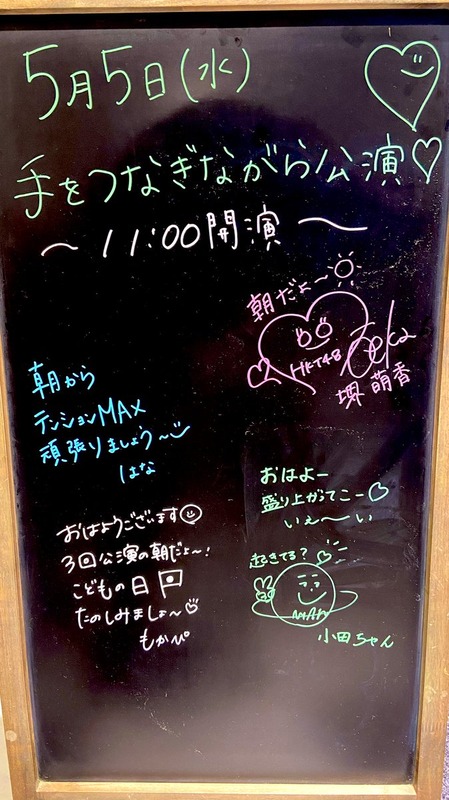 5月5日(水)
手をつなぎながら公演♡
～ 11:00開演 ～
朝だよ～
HKT48
堺 萌香
朝から
テンションMAX
頑張りましょう～
はな
おはよー
盛り上がってこー♡
いぇ〜い
起きてる？
小田ちゃん
おはようございます
3回公演の朝だよ～!
こどもの日
たのしみましょ～
もかぴ